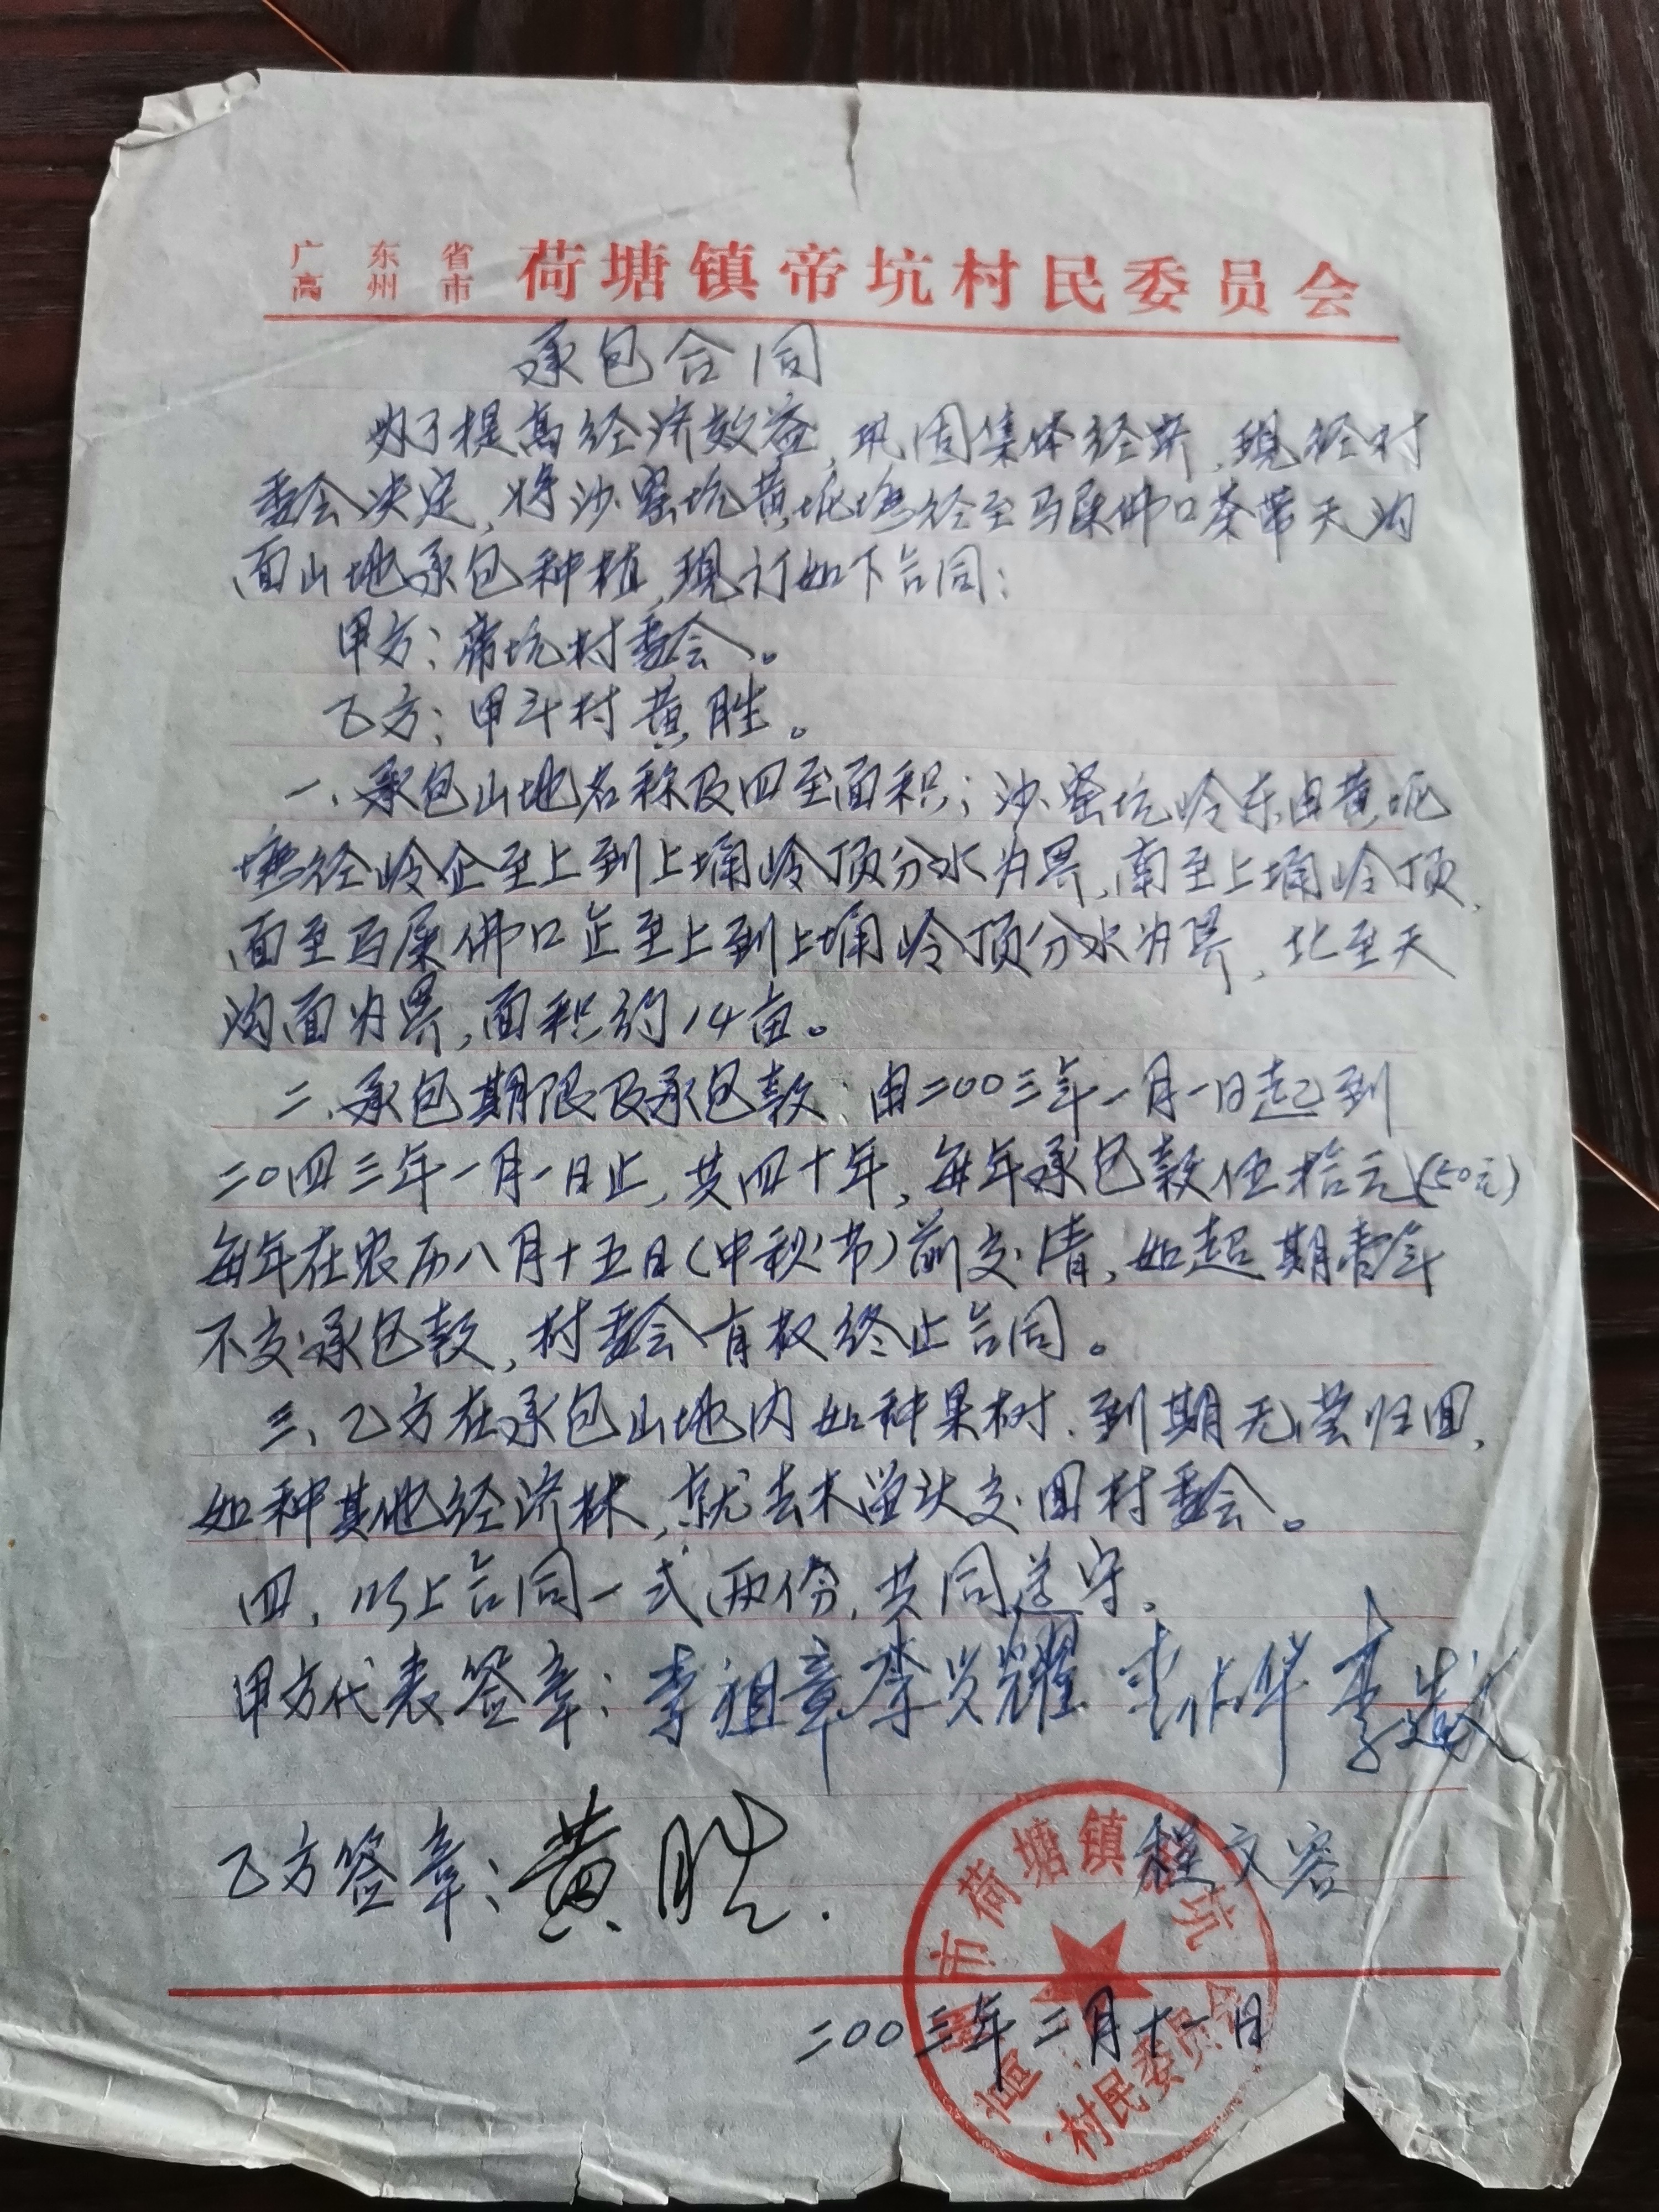 广东省
高州市 荷塘镇帝坑村民委员会
承包合同
为了提高经济效益,巩固集体经济,现经村
委会决定,将沙 坑黄坭 径至马屎佛口茶带天沟
面山地承包种植,现订如下合同:
甲方:帝坑村委会。
乙方:甲斗村黄胜。
一、承包山地名称及四至面积;沙 坑岭东由黄坭
径岭企至上到上埇岭顶分水为界,南至上埇岭顶,
面至马屎佛口 至上到上埇岭顶分水为界,北至天
沟面为界,面积约14亩。
二、承包期限及承包款:由二00三年一月一日起到
二0四三年一月一日止,共四十年,每年承包款伍拾元(50元)
每年在农历八月十五日(中秋节)前交清,如超期 年
不交承包款,村委会有权终止合同。
三、乙方在承包山地内如种果树.到期无偿归回,
如种其他经济林,就去木留头交回村委会。
四、以上合同一式两份,共同遵守。
甲方代表签章:李祖章 李 耀 李佔华 李
程文容
乙方签章:黄胜.
市荷塘镇 坑
村民委员会
二00三年二月十一日